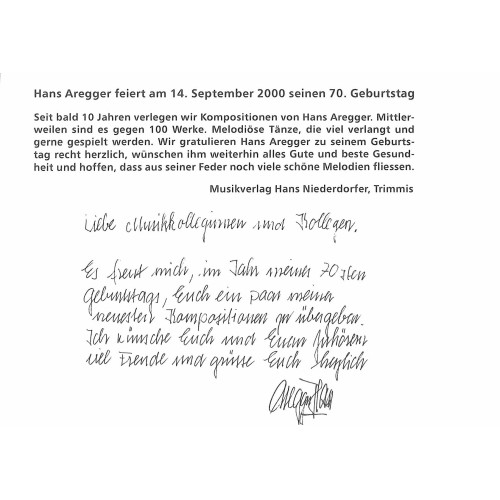 Hans Aregger feiert am 14. September 2000 seinen 70. Geburtstag
Seit bald 10 Jahren verlegen wir Kompositionen von Hans Aregger. Mittler-
weilen sind es gegen 100 Werke. Melodiöse Tänze, die viel verlangt und
gerne gespielt werden. Wir gratulieren Hans Aregger zu seinem Geburts-
tag recht herzlich, wünschen ihm weiterhin alles Gute und beste Gesund-
heit und hoffen, dass aus seiner Feder noch viele schöne Melodien fliessen.
Musikverlag Hans Niederdorfer, Trimmis
Liebe Musikkolleginnen und Kollegen.
Es freut mich, im Jahr meines 70sten
Geburtstags, Euch ein paar meiner
neuesten Kompositionen zu übergeben.
Ich wünsche Euch und Euren Zuhörern
viel Freude und grüsse Euch herzlich
Aregger Hans